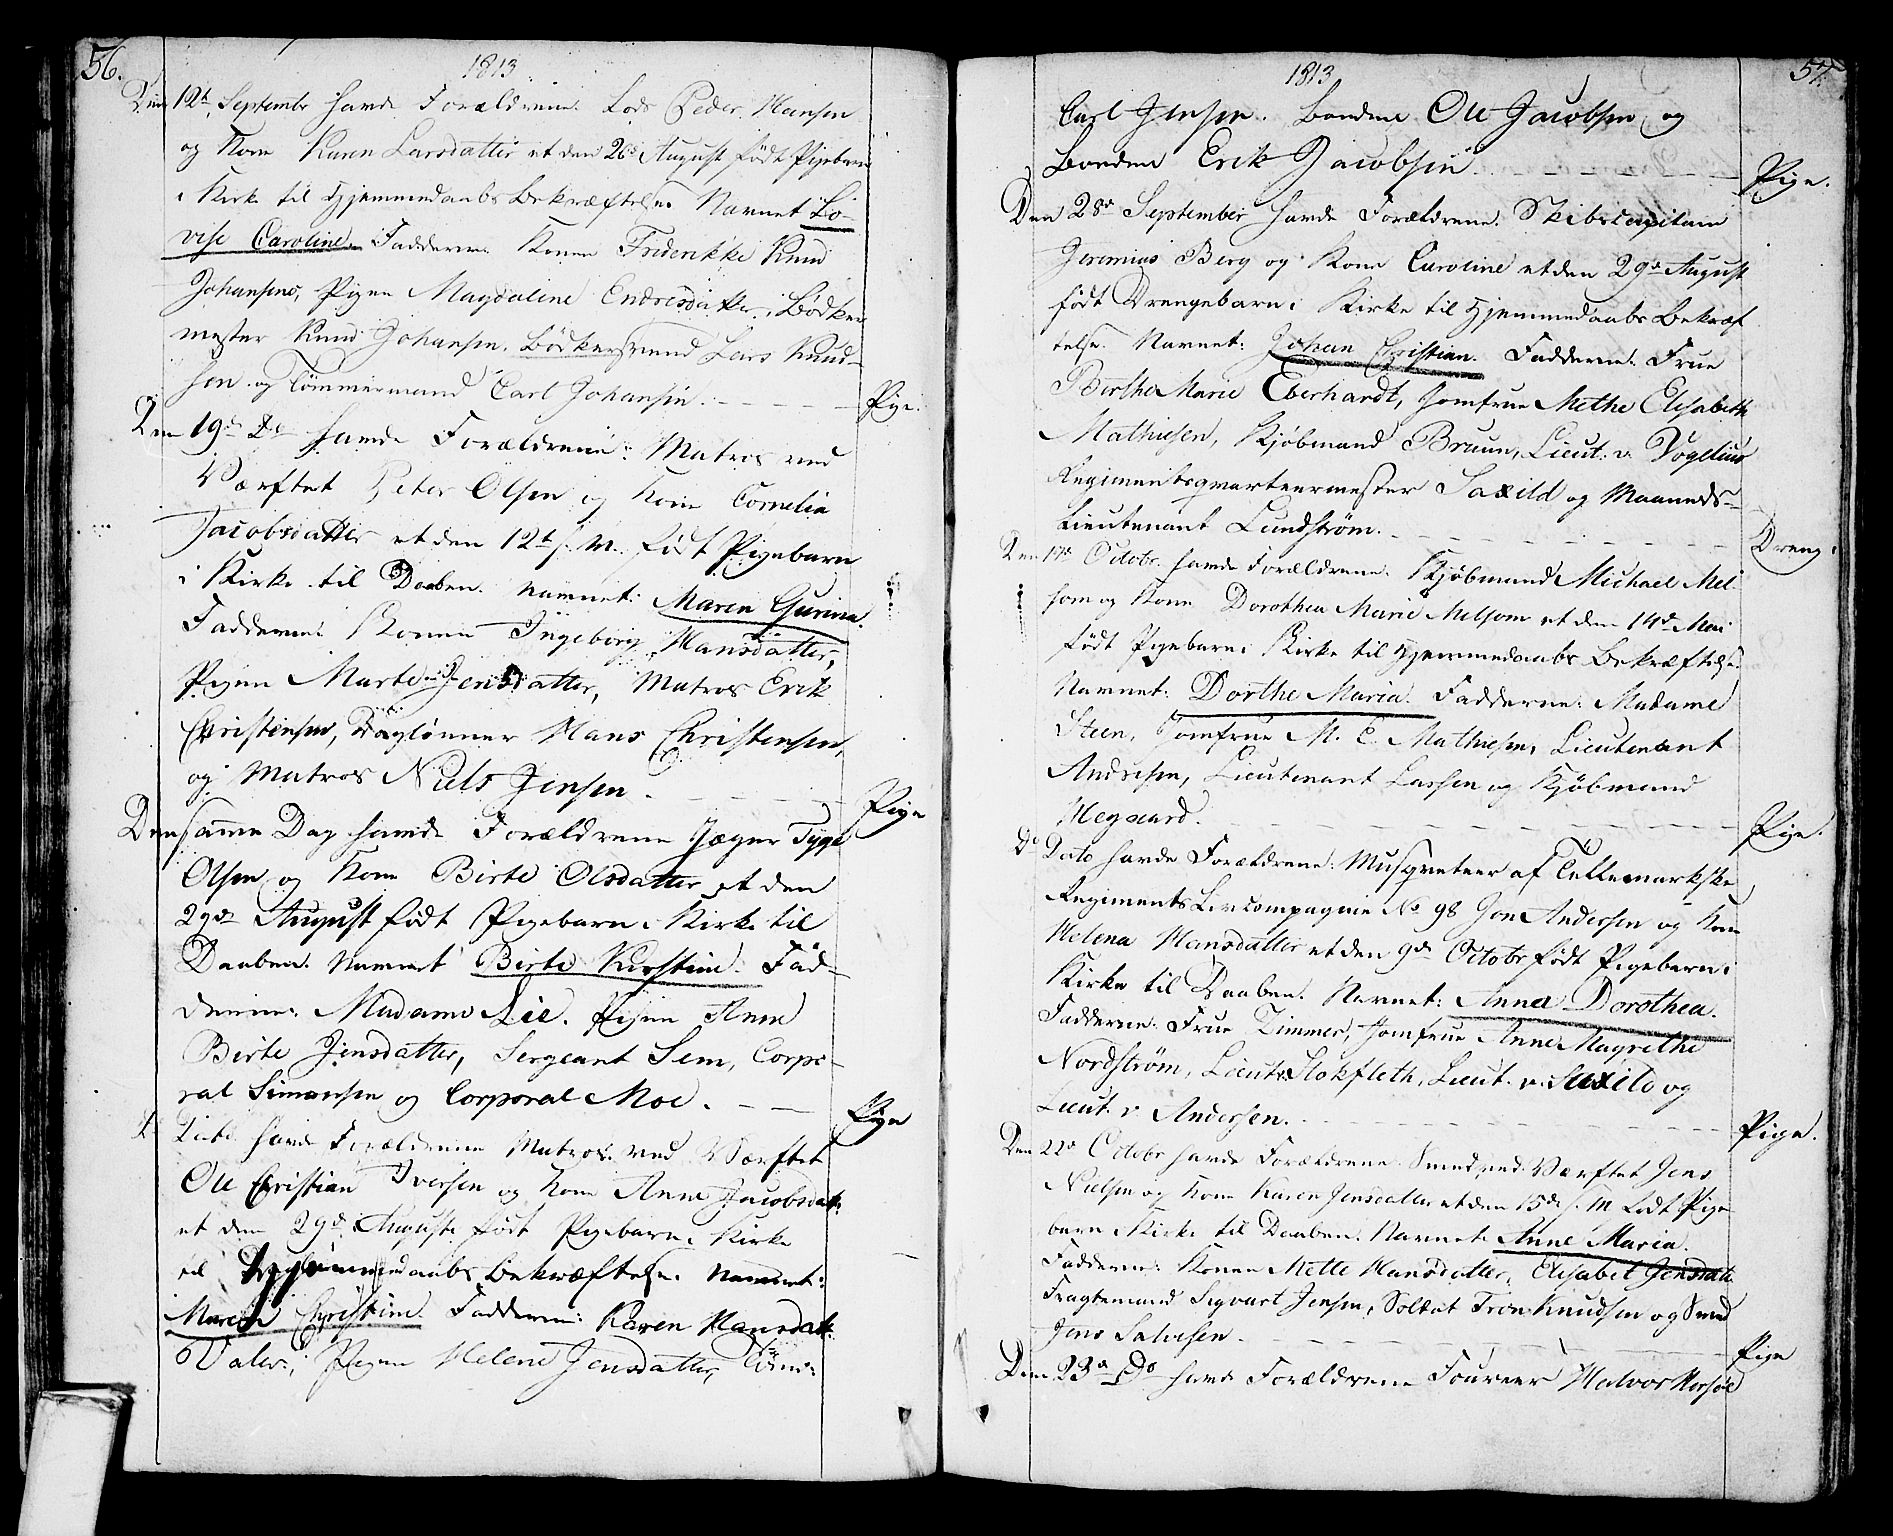 56.
1813
Den 12te Septembr havde Forældrene: Lods Peder Hansen
og Kone Karen Larsdatter et den 26de August født Pigebarn
i Kirke til Hjemmedaabs Bekræftelse. Navnet Lo-
vise Caroline. Fadderne: Konen Friderikke Knud
Johansens, Pigen Magdaline Endresdatter, Bødker
mester Knud Johansen. Bødkersvend Lars Knud-
sen og Tømmermand Carl Johansen. - - - - - Pige.
Den 19de Do havde Forældrene: Matros ved
Værftet Peter Olsen og Kone Cornelia
Jacobsdatter et den 12te s. M. født Pigebarn
i Kirke til Daaben. Navnet: Maren Gurina.
Fadderne: Konen Ingeborg Hansdatter,
Pigen Marte Jensdatter, Matros Erik
Christensen, Daglønner Hans Christensen,
og Matros Niels Jensen. - - - - - Pige
Den samme Dag havde Forældrene Jæger Tyge
Olsen og Kone Birte Olsdatter et den
29de August født Pigebarn i Kirke til
Daaben. Navnet Birte Kirstine. Fad-
derne: Madame Lie. Pigen Anne
Birte Jensdatter, Sergeant Sem, Corpo-
ral Simonsen og Corporal Moe. - - Pige
Dito havde Forældrene Matros ved Værftet
Ole Christian Iversen og Kone Anne Jacobsdatt:
et den 29de Auguste født Pigebarn i Kirke
til Hjemmedaabs Bekræftelse. Navnet:
Maren Christine. Fadderne: Karen Hansdatt:
Valer, Pigen Helene Jensdatter, Töm:
57.
1813
Carl Jensen. Bonden Ole Jacobsen og
Bonden Erik Jacobsen. - - - - - - Pige.
Den 28de September havde Forældrene: Skibscapitain
Jeremias Berg og Kone Caroline et den 29de August
født Drengebarn i Kirke til Hjemmedaabs Bekræf
telse. Navnet: Johan Christian. Fadderne: Frue
Birthe Marie Eberhardt, Jomfrue Methe Elisabeth
Mathiesen, Kjøbmand Bruun, Lieut: v. Vogelius
Regimentsqvarteermester Saxild og Maaneds-
Lieutenant Lundstrøm. - - - - - - - Dreng.
Den 17de Octobr havde Forældrene: Kjøbmand Michael Mel
som og Kone Dorothea Marie Melsom et den 14de Mai
født Pigebarn i Kirke til Hjemmedaabs Bekræftelse.
Navnet: Dorthe Maria. Fadderne: Madame
Steen, Jomfrue M. E. Mathiesen, Lieutenant
Andresen, Lieutenant Lassen og Kjøbmand
Megaard. - - - - - - - - - - Pige.
Do Dato havde Forældrene: Musqveteer af Tellemarkske
Regiments Livcompagnie No 98 Jon Andersen og Kone
Helena Hansdatter et den 9de Octobr født Pigebarn i
Kirke til Daaben. Navnet: Anna Dorothea.
Fadderne: Frue Zimmer, Jomfrue Anne Magrethe
Nordstrøm, Lieut: v. Stokfleth, Lieut. v. Saxild og
Lieut. v. Andersen. - - - - - - - - Pige.
Den 22de Octobr havde Forældrene: Smed ved Værftet Jens
Nielsen og Kone Karen Jensdatter et den 15de s. M. født Pige
barn i Kirke til Daaben. Navnet Anne Maria.
Fadderne: Konen Mette Hansdatter, Elisabet Jensdatt:
Fragtemand Sigvart Jensen, Soldat Tron Knudsen og Smed
Jens Salvesen. - - - - - - - - Pige
Den 23de Do havde Forældrene Foureer Halvor